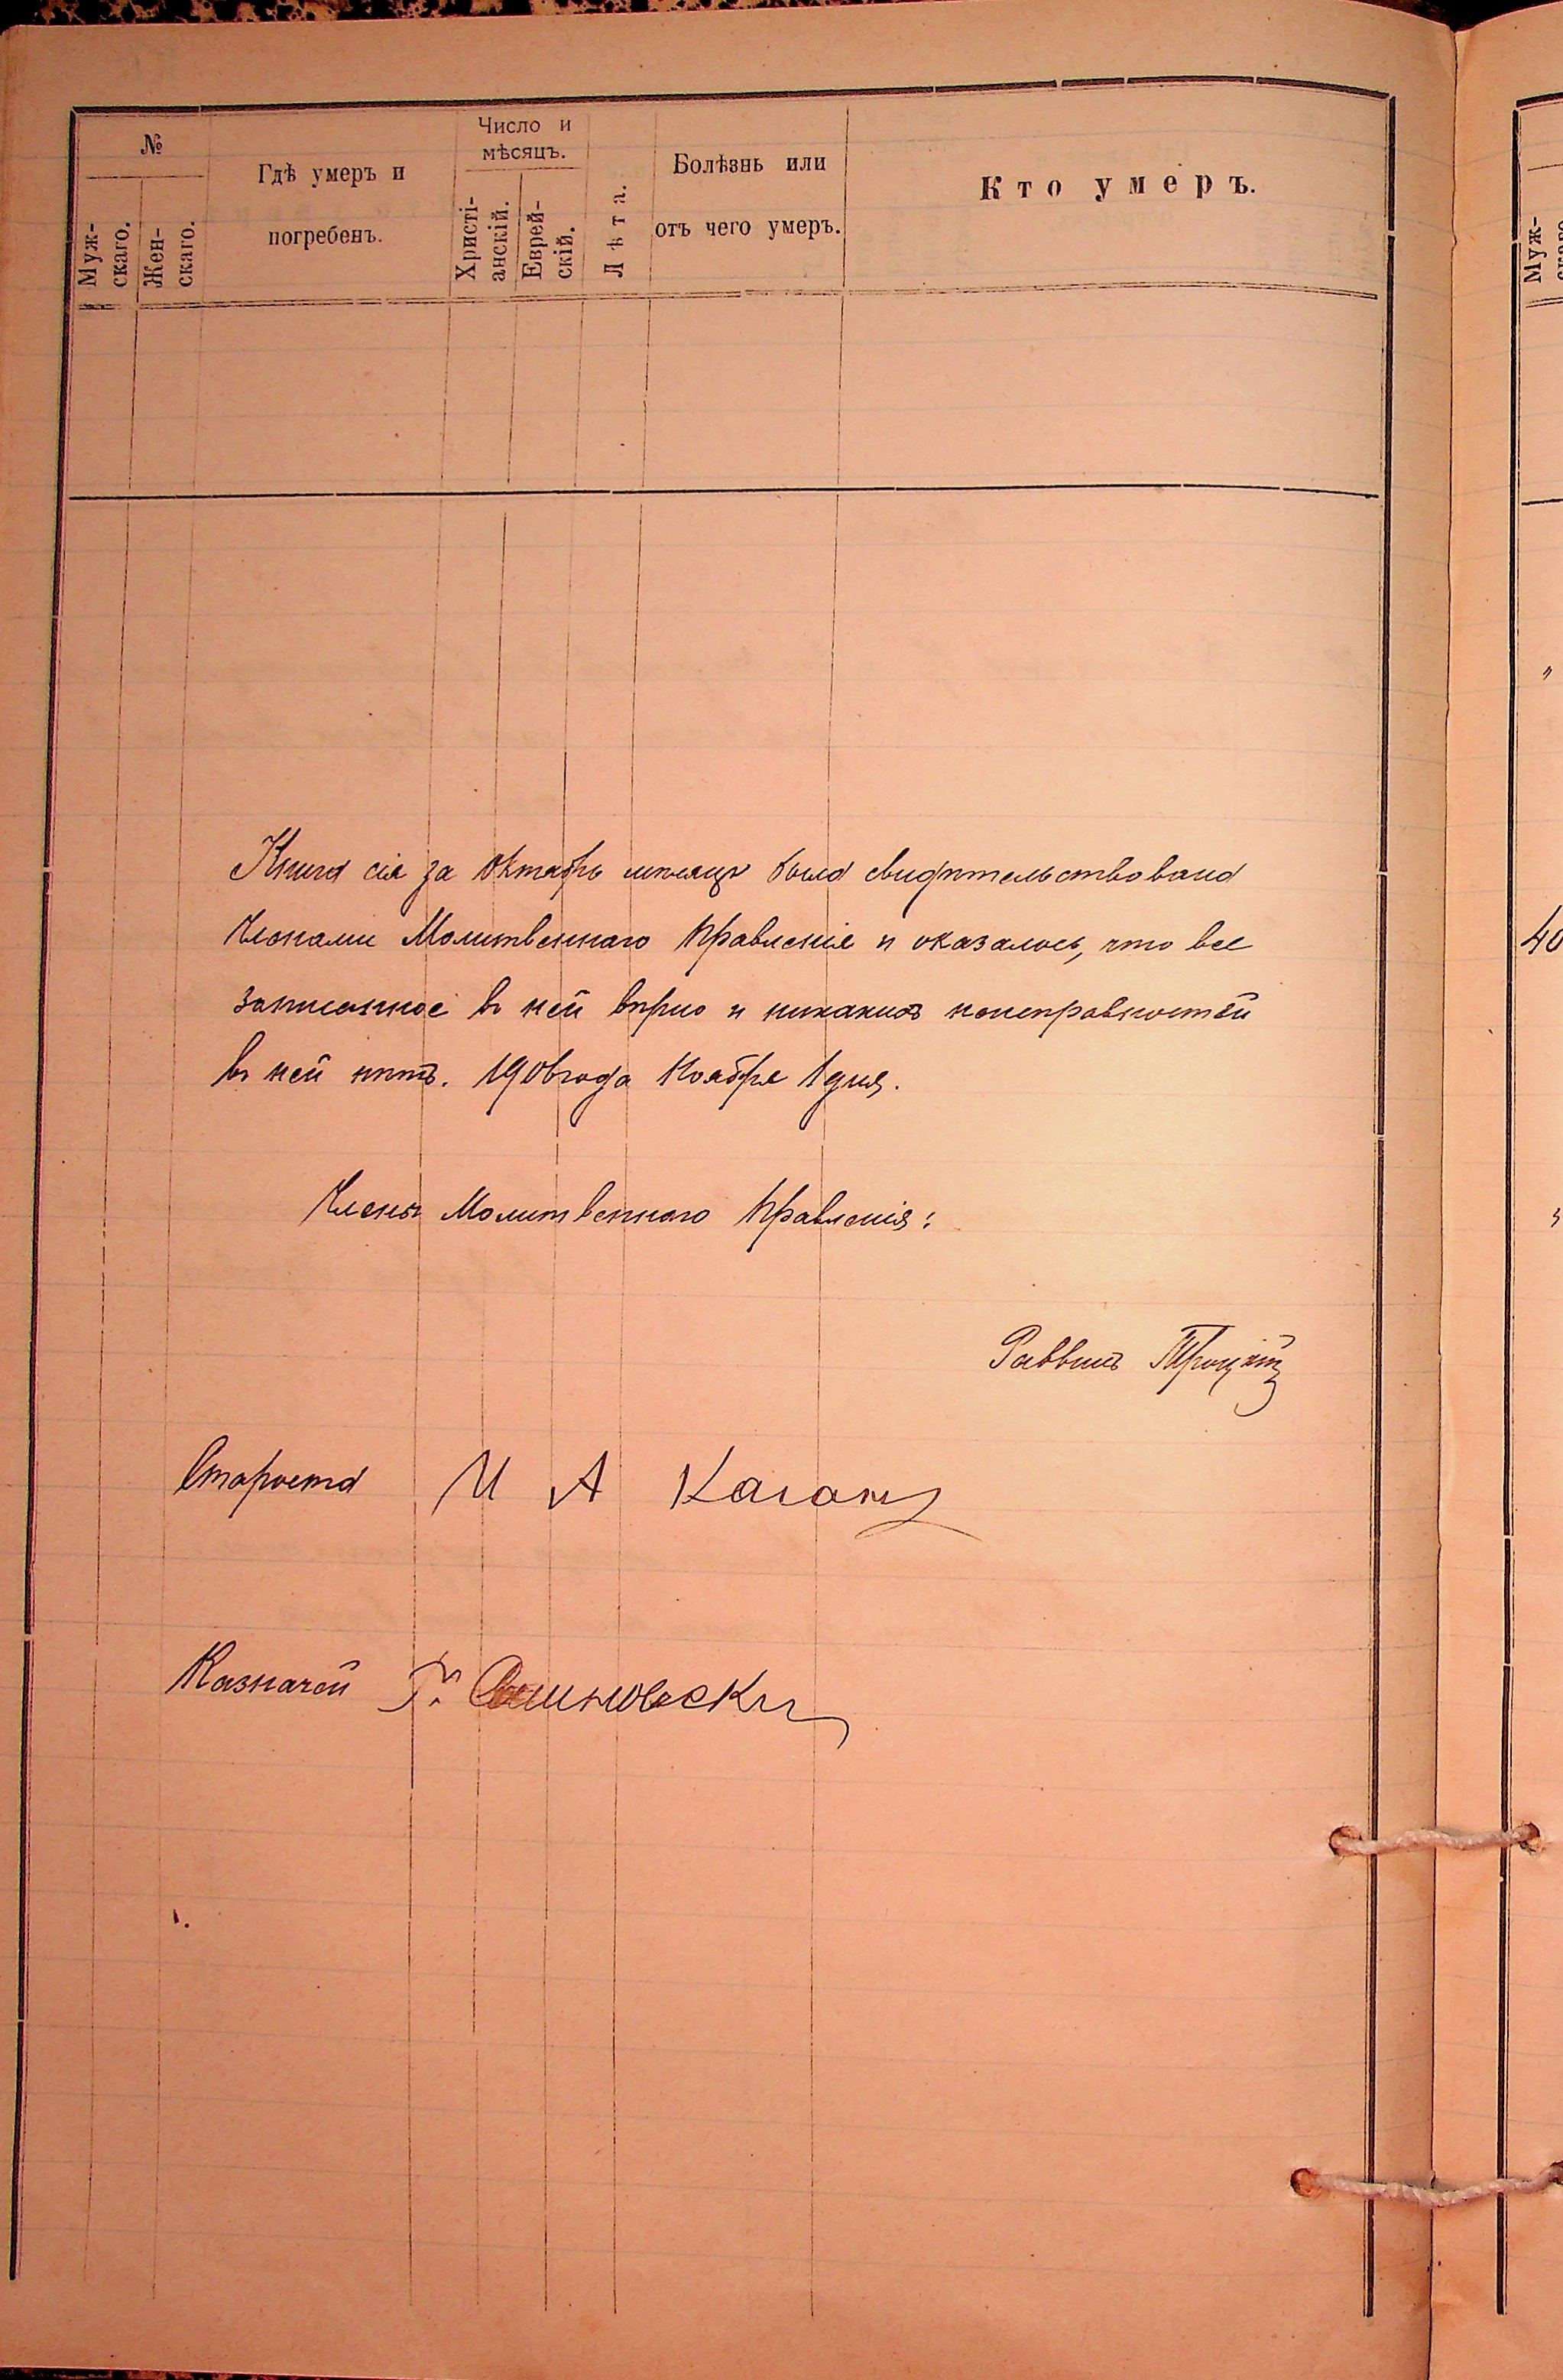 №
Муж-
скаго.
Жен-
скаго.
Гдѣ умеръ и
погребенъ.
Число и
мѣсяцъ.
Христі-
анскій.
Еврей-
скій.
Лѣта.
Болѣзнь или
отъ чего умеръ.
Кто умеръ.
Книга сія за Октябрь мѣсяцъ была свидѣтельствована
Членами Молитвеннаго Правленія и оказалось, что все
записанное въ ней вѣрно и никакихъ неисправностей
въ ней нѣтъ. 1906 года Ноября 1 дня.
Члены Молитвеннаго Правленія:
Раввинъ Троцкій
Староста И А Каганъ
Казначей Г.
Муж-
40